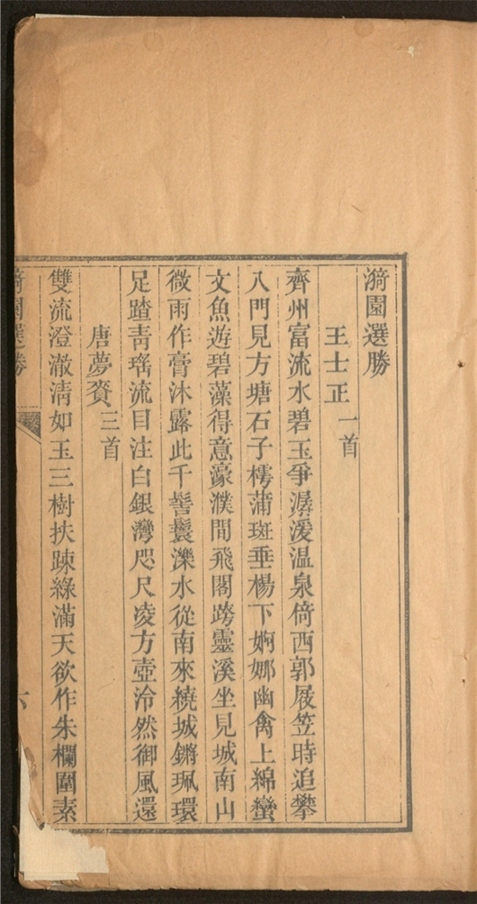 漪園選勝
王士正一首
齊州富流水碧玉爭潺湲温泉倚西郭屐笠時追攀
入門見方塘石子樗蒲斑垂楊下婀娜幽禽上綿蠻
文魚遊碧藻得意濠濮間飛閣跨靈溪坐見城南山
微雨作膏沐露此千髻鬟濼水從南來繞城鏘珮環
足踏青瑤流目注白銀灣咫尺凌方壺泠然御風還
唐夢賚三首
雙流澄澈清如玉三樹扶踈綠滿天欲作朱欄圍素
漪園選勝
六